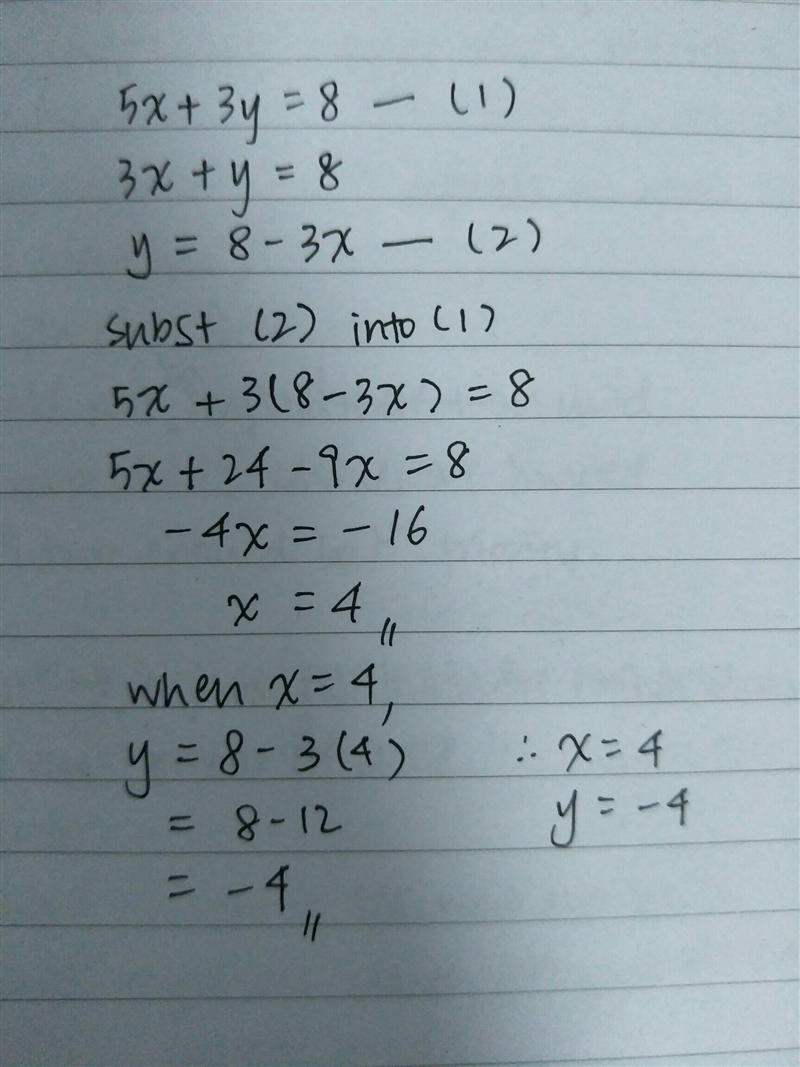 5x + 3y = 8 — (1)
3x + y = 8
y = 8 - 3x — (2)
subst (2) into (1)
5x + 3(8 - 3x) = 8
5x + 24 - 9x = 8
-4x = -16
x = 4 〃
when x = 4,
y = 8 - 3(4)
= 8 - 12
= -4 〃
∴ x = 4
y = -4